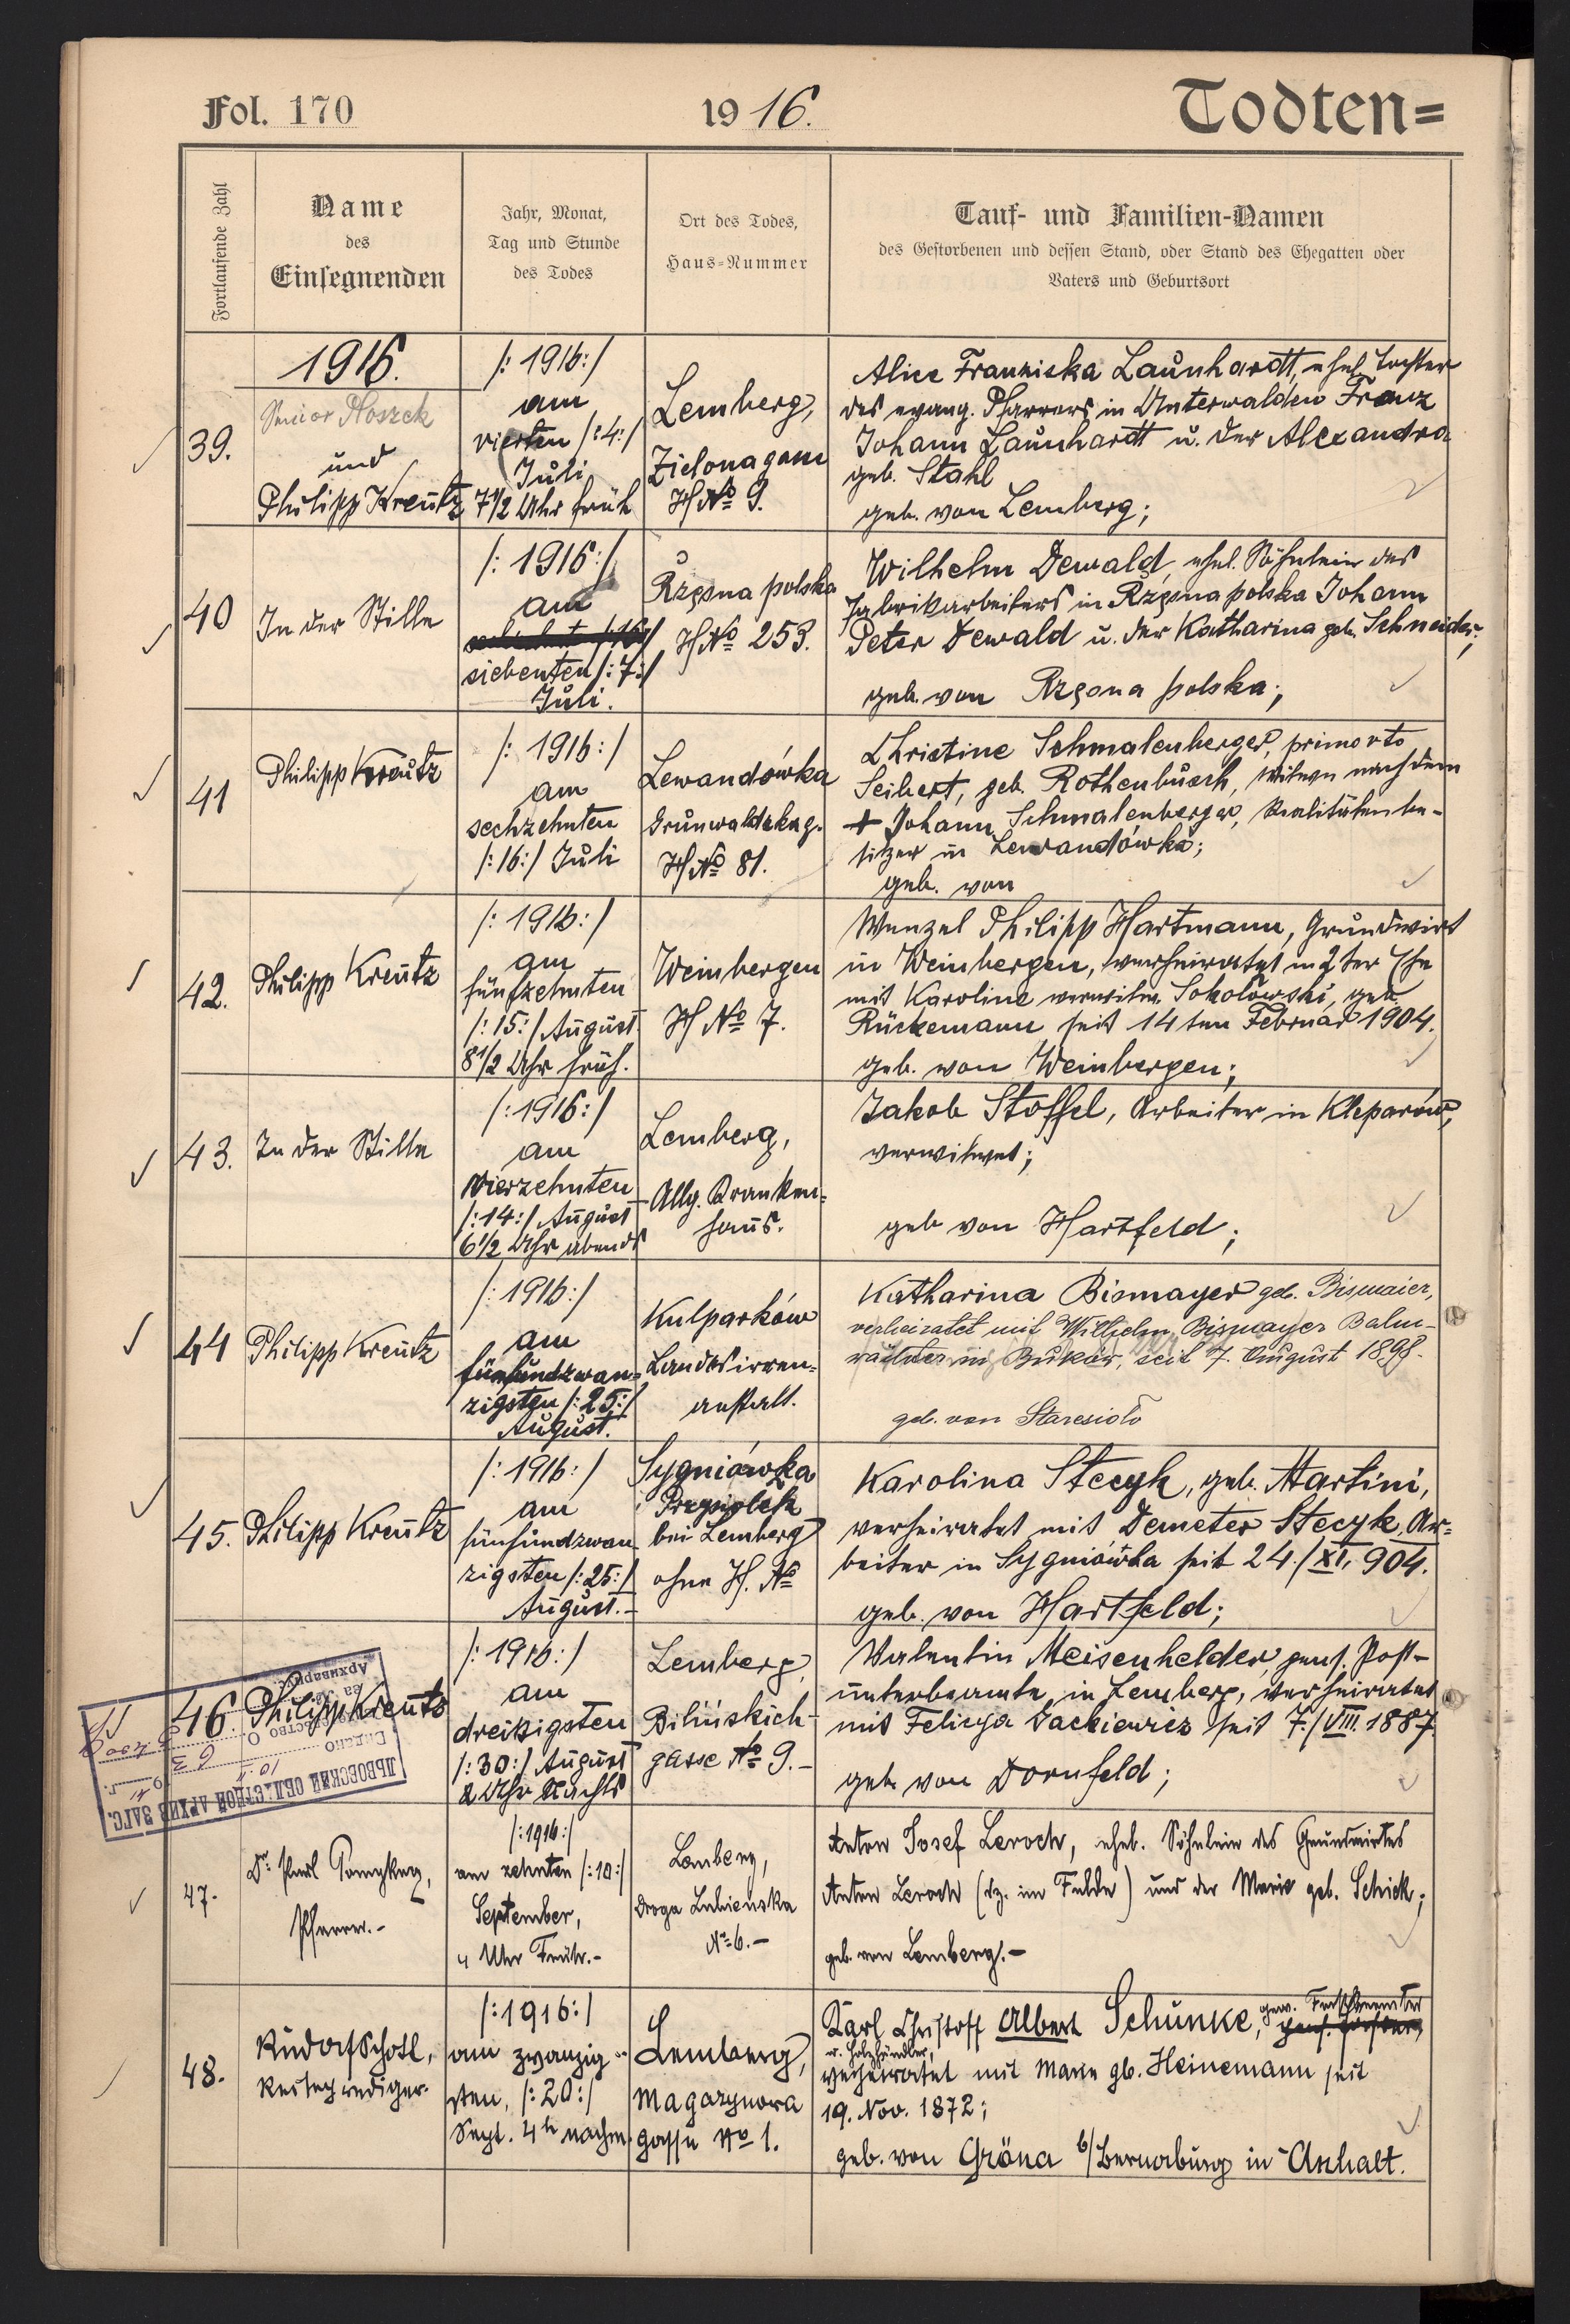 Fol. 170
1916.
Todten=
Fortlaufende Zahl
Name
des
Einsegnenden
Jahr, Monat,
Tag und Stunde
des Todes
Ort des Todes,
Haus-Nummer
Tauf- und Familien-Namen
des Gestorbenen und dessen Stand, oder Stand des Ehegatten oder
Vaters und Geburtsort
1916.
39.
Senior Ploszek
und
Philipp Kreutz
/: 1916:/
am
vierten /:4:/
Juli
7 1/2 Uhr früh
Lemberg,
Zielonagasse
H No 9.
Alice Franziska Launhardt, ehel. Tochter
des evang. Pfarrers in Unterwalden Franz
Johann Launhardt u. der Alexandra
geb. Stahl
geb. von Lemberg;
40
In der Stille
/: 1916:/
am
siebenten /:7:/
Juli.
Rzęsna polska
H No 253.
Wilhelm Dewald, ehel. Söhnlein des
Fabrikarbeiters in Rzęsna polska Johann
Peter Dewald u. der Katharina geb. Schneider;
geb. von Rzęsna polska;
41
Philipp Kreutz
/: 1916:/
am
sechzehnten
/:16:/ Juli
Lewandówka
Grunwaldzkag.
H No 81.
Christine Schmalenberger, primo vto
Seibert, geb. Rothenbusch, Witwe nach dem
+ Johann Schmalenberger, Realitätenbe-
sitzer in Lewandówka;
geb. von
42.
Philipp Kreutz
/: 1916:/
am
fünfzehnten
/:15:/ August
8 1/2 Uhr früh.
Weinbergen
H No 7.
Wenzel Philipp Hartmann, Grundwirt
in Weinbergen, verheiratet in 2ter Ehe
mit Karoline verwitw. Sokolowski, geb.
Rückemann seit 14ten Februar 1904.
geb. von Weinbergen;
43.
In der Stille
/: 1916:/
am
vierzehnten
/:14:/ August
6 1/2 Uhr abends
Lemberg,
Allg. Kranken-
haus.
Jakob Stoffel, Arbeiter in Kleparów,
verwitwet;
geb von Hartfeld;
44
Philipp Kreutz
/: 1916:/
am
fünfundzwan-
zigsten /:25:/
August.
Kulparków
Landesirren-
anstalt.
Katharina Bismayer geb. Bismaier,
verheiratet mit Wilhelm Bismayer Bahn-
wächter in seit 7. August 1898.
geb. von Staresioło
45.
Philipp Kreutz
/: 1916:/
am
fünfundzwan-
zigsten /:25:/
August.-
Sygniówka
bei Lemberg
ohne H. No
Karolina Stecyk, geb. Martini,
verheiratet mit Demeter Stecyk, Ar-
beiter in Sygniówka seit 24./XI. 904.
geb. von Hartfeld;
46
Philipp Kreutz
/: 1916:/
am
dreißigsten
/:30:/ August
2 Uhr Nachts
Lemberg,
Bilińskich-
gasse No 9.-
Valentin Meisenhelder, pens. Post-
unterbeamte in Lemberg, verheiratet
mit Felicya Jackiewicz seit 7./VIII. 1887.
geb. von Dornfeld;
ЛЬВОВСКИЙ ОБЛАСТНОЙ АРХИВ ЗАГС.
Архивариус
47.
Pfarrer.-
/:1916:/
am zehnten /:10:/
September,
4 Uhr Früh.-
Lemberg,
Droga Lubienska
No 6.-
Anton Josef Leroch, ehel. Söhnlein des Grundwirtes
Anton Leroch (dz. im Felde) und der Marie geb. Schick;
geb. von Lemberg.-
48.
Rudolf Schotl,
Reiseprediger.
/:1916:/
am zwanzig-
sten, /:20:/
Sept. 4h nachm.
Lemberg,
Magazynowa
gasse No 1.
Karl Christoff Albert Schunke, gew. Forstbeamter
u. Holzhändler,
verheiratet mit Marie gb. Heinemann seit
19. Nov. 1872;
geb. von Gröna b/Bernburg in Anhalt.